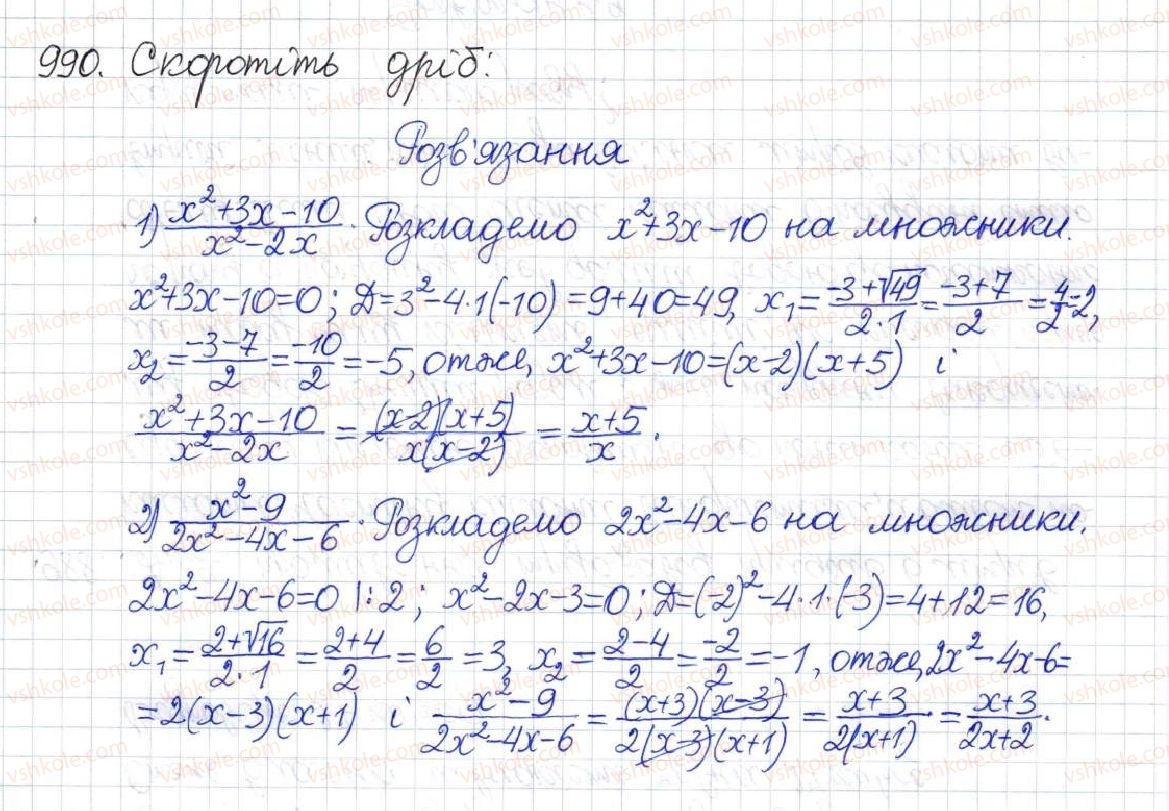 990. Скоротіть дріб:
Розв'язання
1) (x²+3x-10)/(x²-2x). Розкладемо x²+3x-10 на множники.
x²+3x-10=0; Д=3²-4·1(-10)=9+40=49, x₁=(-3+√49)/(2·1)=(-3+7)/2=4/2=2,
x₂=(-3-7)/2=(-10)/2=-5, отже, x²+3x-10=(x-2)(x+5) і
(x²+3x-10)/(x²-2x)=((x-2)(x+5))/(x(x-2))=(x+5)/x.
2) (x²-9)/(2x²-4x-6). Розкладемо 2x²-4x-6 на множники.
2x²-4x-6=0 |:2; x²-2x-3=0; Д=(-2)²-4·1·(-3)=4+12=16,
x₁=(2+√16)/(2·1)=(2+4)/2=6/2=3, x₂=(2-4)/2=(-2)/2=-1, отже, 2x²-4x-6=
=2(x-3)(x+1) і (x²-9)/(2x²-4x-6)=((x+3)(x-3))/(2(x-3)(x+1))=(x+3)/(2(x+1))=(x+3)/(2x+2).
vshkole.com